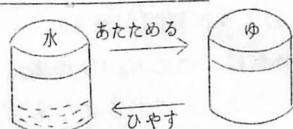 水
あたためる
ゆ
ひやす